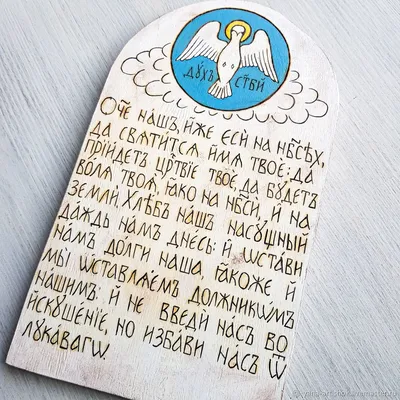 дꙋ́хъ ст҃ы́й
Ѻ҆́ч҃е нашъ, и҆́же є҆сѝ на нб҃сѣхъ,
да свѧти́тсѧ и҆́мѧ твоѐ: да
прїи́детъ црⷭ҇твїе твоѐ, да бꙋ́детъ
во́лѧ твоѧ̀, ꙗ҆́кѡ на нб҃сѝ, и҆ на
землѝ, хлѣ́бъ нашъ насꙋ́щный
да́ждь намъ дне́сь: и҆ ѡ҆ста́ви
на́мъ до́лги нашѧ, ꙗ҆́коже, и҆
мы̀ ѡ҆ставлѧ́емъ должникѡ́мъ
нашимъ: и҆ не введѝ на́съ во
и҆скꙋше́нїе, но и҆зба́ви на́съ ѿ
лꙋка́вагѡ.